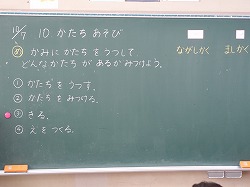 10/7 10 かたち あそび
め かみに かたち をうつして
どんな かたち が あるか みつけよう。
ながしかく
ましかく
① かたちをうつす。
② かたちをみつける。
③ きる。
④ えをつくる。